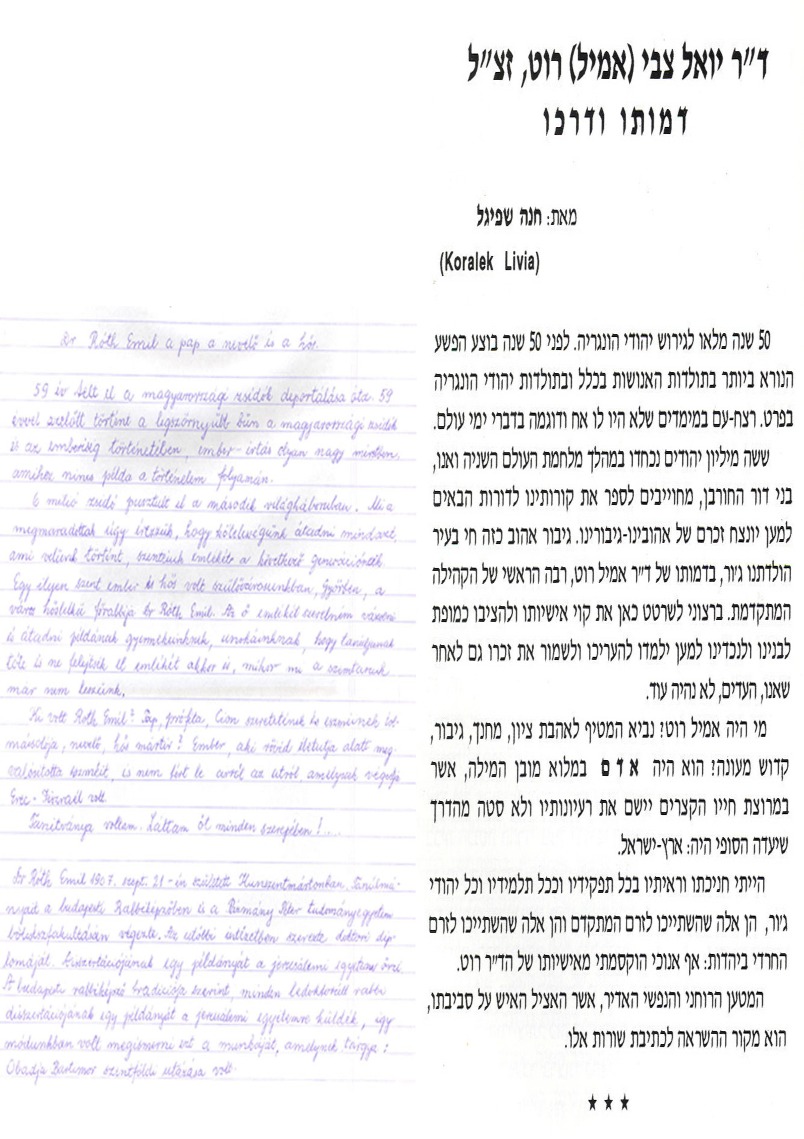 ד"ר יואל צבי (אמיל) רוט, זצ"ל
דמותו ודרכו
מאת: חנה שפיגל
(Koralek Livia)
50 שנה מלאו לגירוש יהודי הונגריה. לפני 50 שנה בוצע הפשע
הנורא ביותר בתולדות האנושות בכלל ובתולדות יהודי הונגריה
בפרט. רצח-עם במימדים שלא היו לו אח ודוגמה בדברי ימי עולם.
ששה מיליון יהודים נכחדו במהלך מלחמת העולם השניה ואנו,
בני דור החורבן, מחוייבים לספר את קורותינו לדורות הבאים
למען יונצח זכרם של אהובינו-גיבורינו. גיבור אהוב כזה חי בעיר
הולדתנו ג'ור, בדמותו של ד"ר אמיל רוט, רבה הראשי של הקהילה
המתקדמת. ברצוני לשרטט כאן את קוי אישיותו ולהציבו כמופת
לבנינו ולנכדינו למען ילמדו להעריכו ולשמור את זכרו גם לאחר
שאנו, העדים, לא נהיה עוד.
מי היה אמיל רוט? נביא המטיף לאהבת ציון, מחנך, גיבור,
קדוש מעונה? הוא היה אדם במלוא מובן המילה, אשר
במרוצת חייו הקצרים יישם את רעיונותיו ולא סטה מהדרך
שיעדה הסופי היה: ארץ-ישראל.
הייתי חניכתו וראיתיו בכל תפקידיו וככל תלמידיו וכל יהודי
ג'ור, הן אלה שהשתייכו לזרם המתקדם והן אלה שהשתייכו לזרם
החרדי ביהדות: אף אנוכי הוקסמתי מאישיותו של הד"ר רוט.
המטען הרוחני והנפשי האדיר, אשר האציל האיש על סביבתו,
הוא מקור ההשראה לכתיבת שורות אלו.
★ ★ ★
Dr Róth Emil a pap a nevelő és a hős.
59 év telt el a magyarországi zsidók deportálása óta. 59
évvel ezelőtt történt a legszörnyűbb bűn a magyarországi zsidók
és az emberiség történetében, ember-irtás olyan nagy méretben,
amihez nincs példa a történelem folyamán.
6 millió zsidó pusztult el a második világháboruban. Mi a
megmaradottak úgy érezzük, hogy kötelességünk átadni mindazt,
ami velünk történt, szenteink emlékét a következő generációnak.
Egy ilyen szent ember és hős volt szülővárosunkban, Győrben, a
város hőslelkű főrabbija Dr Róth Emil. Az ő emlékét szeretném vázolni
és átadni példának gyermekeinknek, unokáinknak, hogy tanuljanak
tőle és ne felejtsék el emlékét akkor is, mikor mi a szemtanuk
már nem leszünk.
Ki volt Róth Emil? Pap, próféta, Cion szeretetének és
, nevelő, hős mártir? Ember, aki rövid életutja alatt meg-
valósította eszméit, és nem tért le erről az utról, amelynek végcélja
Erec-Jiszraél volt.
Tanitványa voltam. Láttam őt minden szerepében!...
Dr Róth Emil 1907. szept. 21-én született Kunszentmártonban. Tanulmá-
nyait a budapesti Rabbiképzőben és a Pázmány Péter tudományegyetem
bölcsészfakultásán végezte. Az utóbbi intézetben szerezte doktori dip-
lomáját. Disszertációjának egy példányát a jeruzsálemi egyetem őrzi.
A budapesti rabbiképző tradiciója szerint, minden ledoktorált rabbi
disszertációjának egy példányát a jeruzsálemi egyetemre küldték, igy
módunkban volt megismerni ezt a munkáját, amelynek tárgya:
Obadja Bartinoro szentföldi utazása volt.